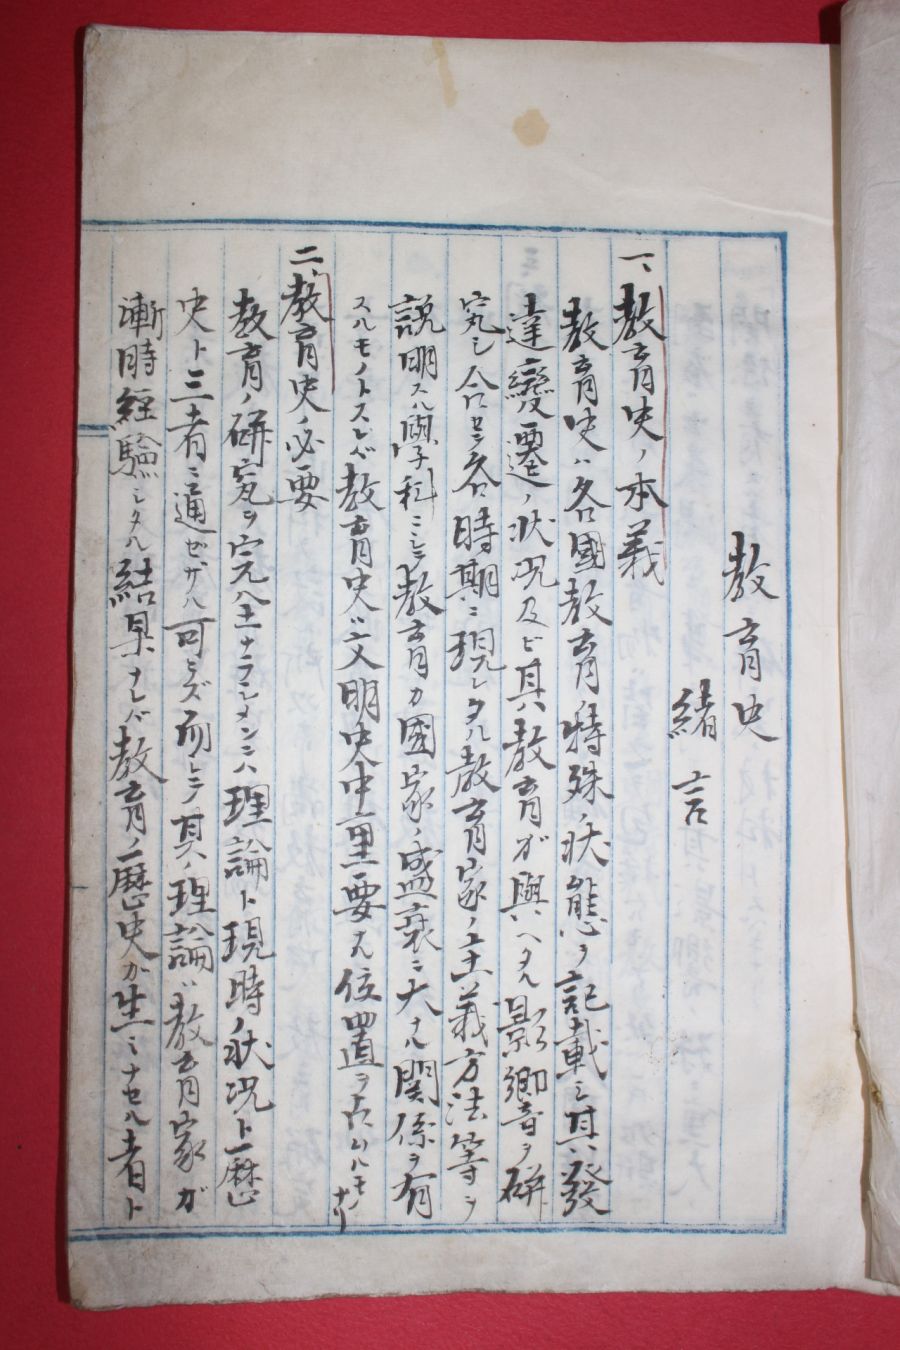 教育史
緒言
一、教育史ノ本義
教育史ハ各國教育ノ特殊ノ状態ヲ記載シ其ノ發
達變遷ノ状況及ビ其ノ教育ガ與ヘタル影響ヲ研
究シ合セテ各時期ニ現レタル教育家ノ主義方法等ヲ
説明スル學科ニシテ教育カ國家ノ盛衰ニ大ナル関係ヲ有
スルモノトスレバ教育史ハ文明史中重要ナル位置ヲ占ムルモノナリ
二、教育史ノ必要
教育ノ研究ヲ完全ナラシメンニハ理論ト現時ノ状況ト歴
史ト三者ニ通ゼザル可ラズ而シテ其ノ理論ハ教育家ガ
漸時経驗シタル結果ナレバ教育ノ歴史カ生ミナセル者ト